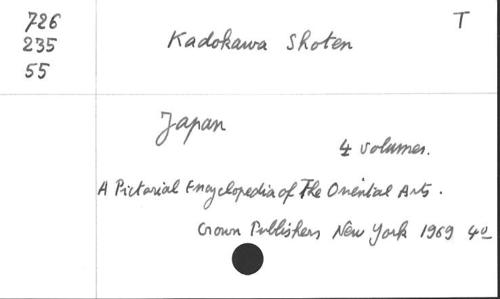 726 T
235 Kadokawa Shoten
55
Japan
4 volumes.
A Pictorial Encyclopedia of The Oriental Arts.
Crown Publishers New York 1969 4o